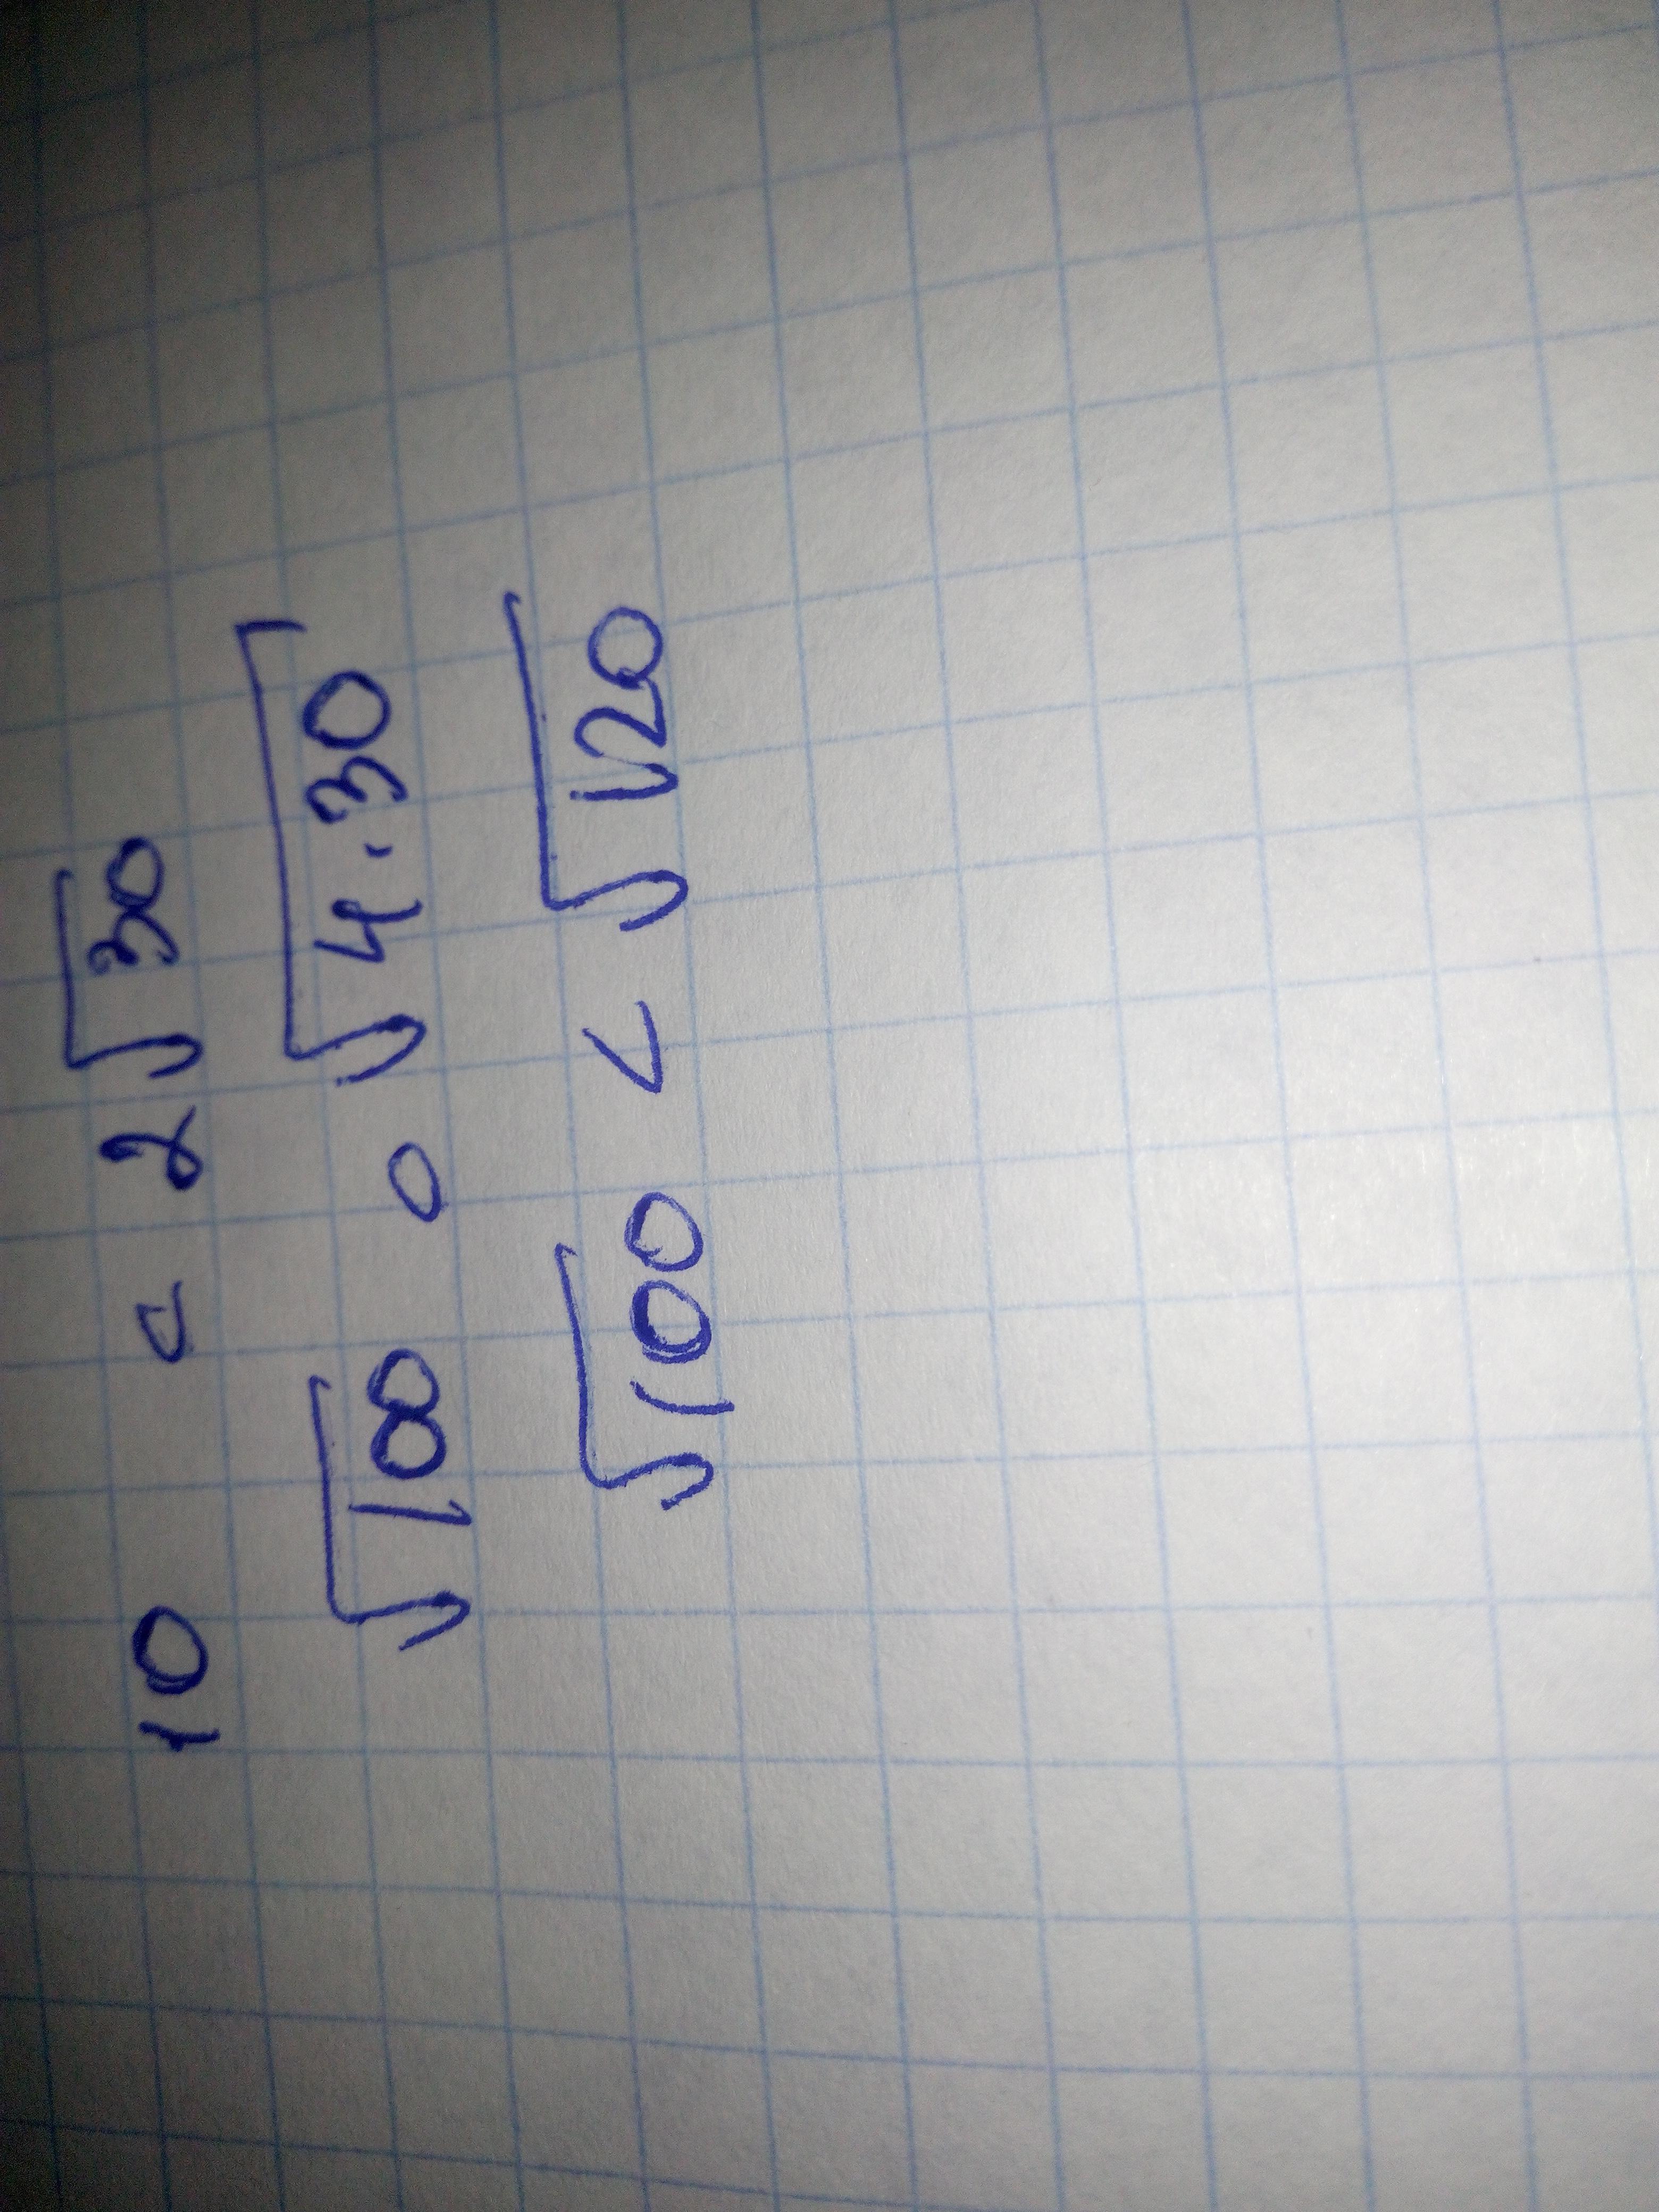 10 < 2√30
√100 ○ √4·30
√100 < √120